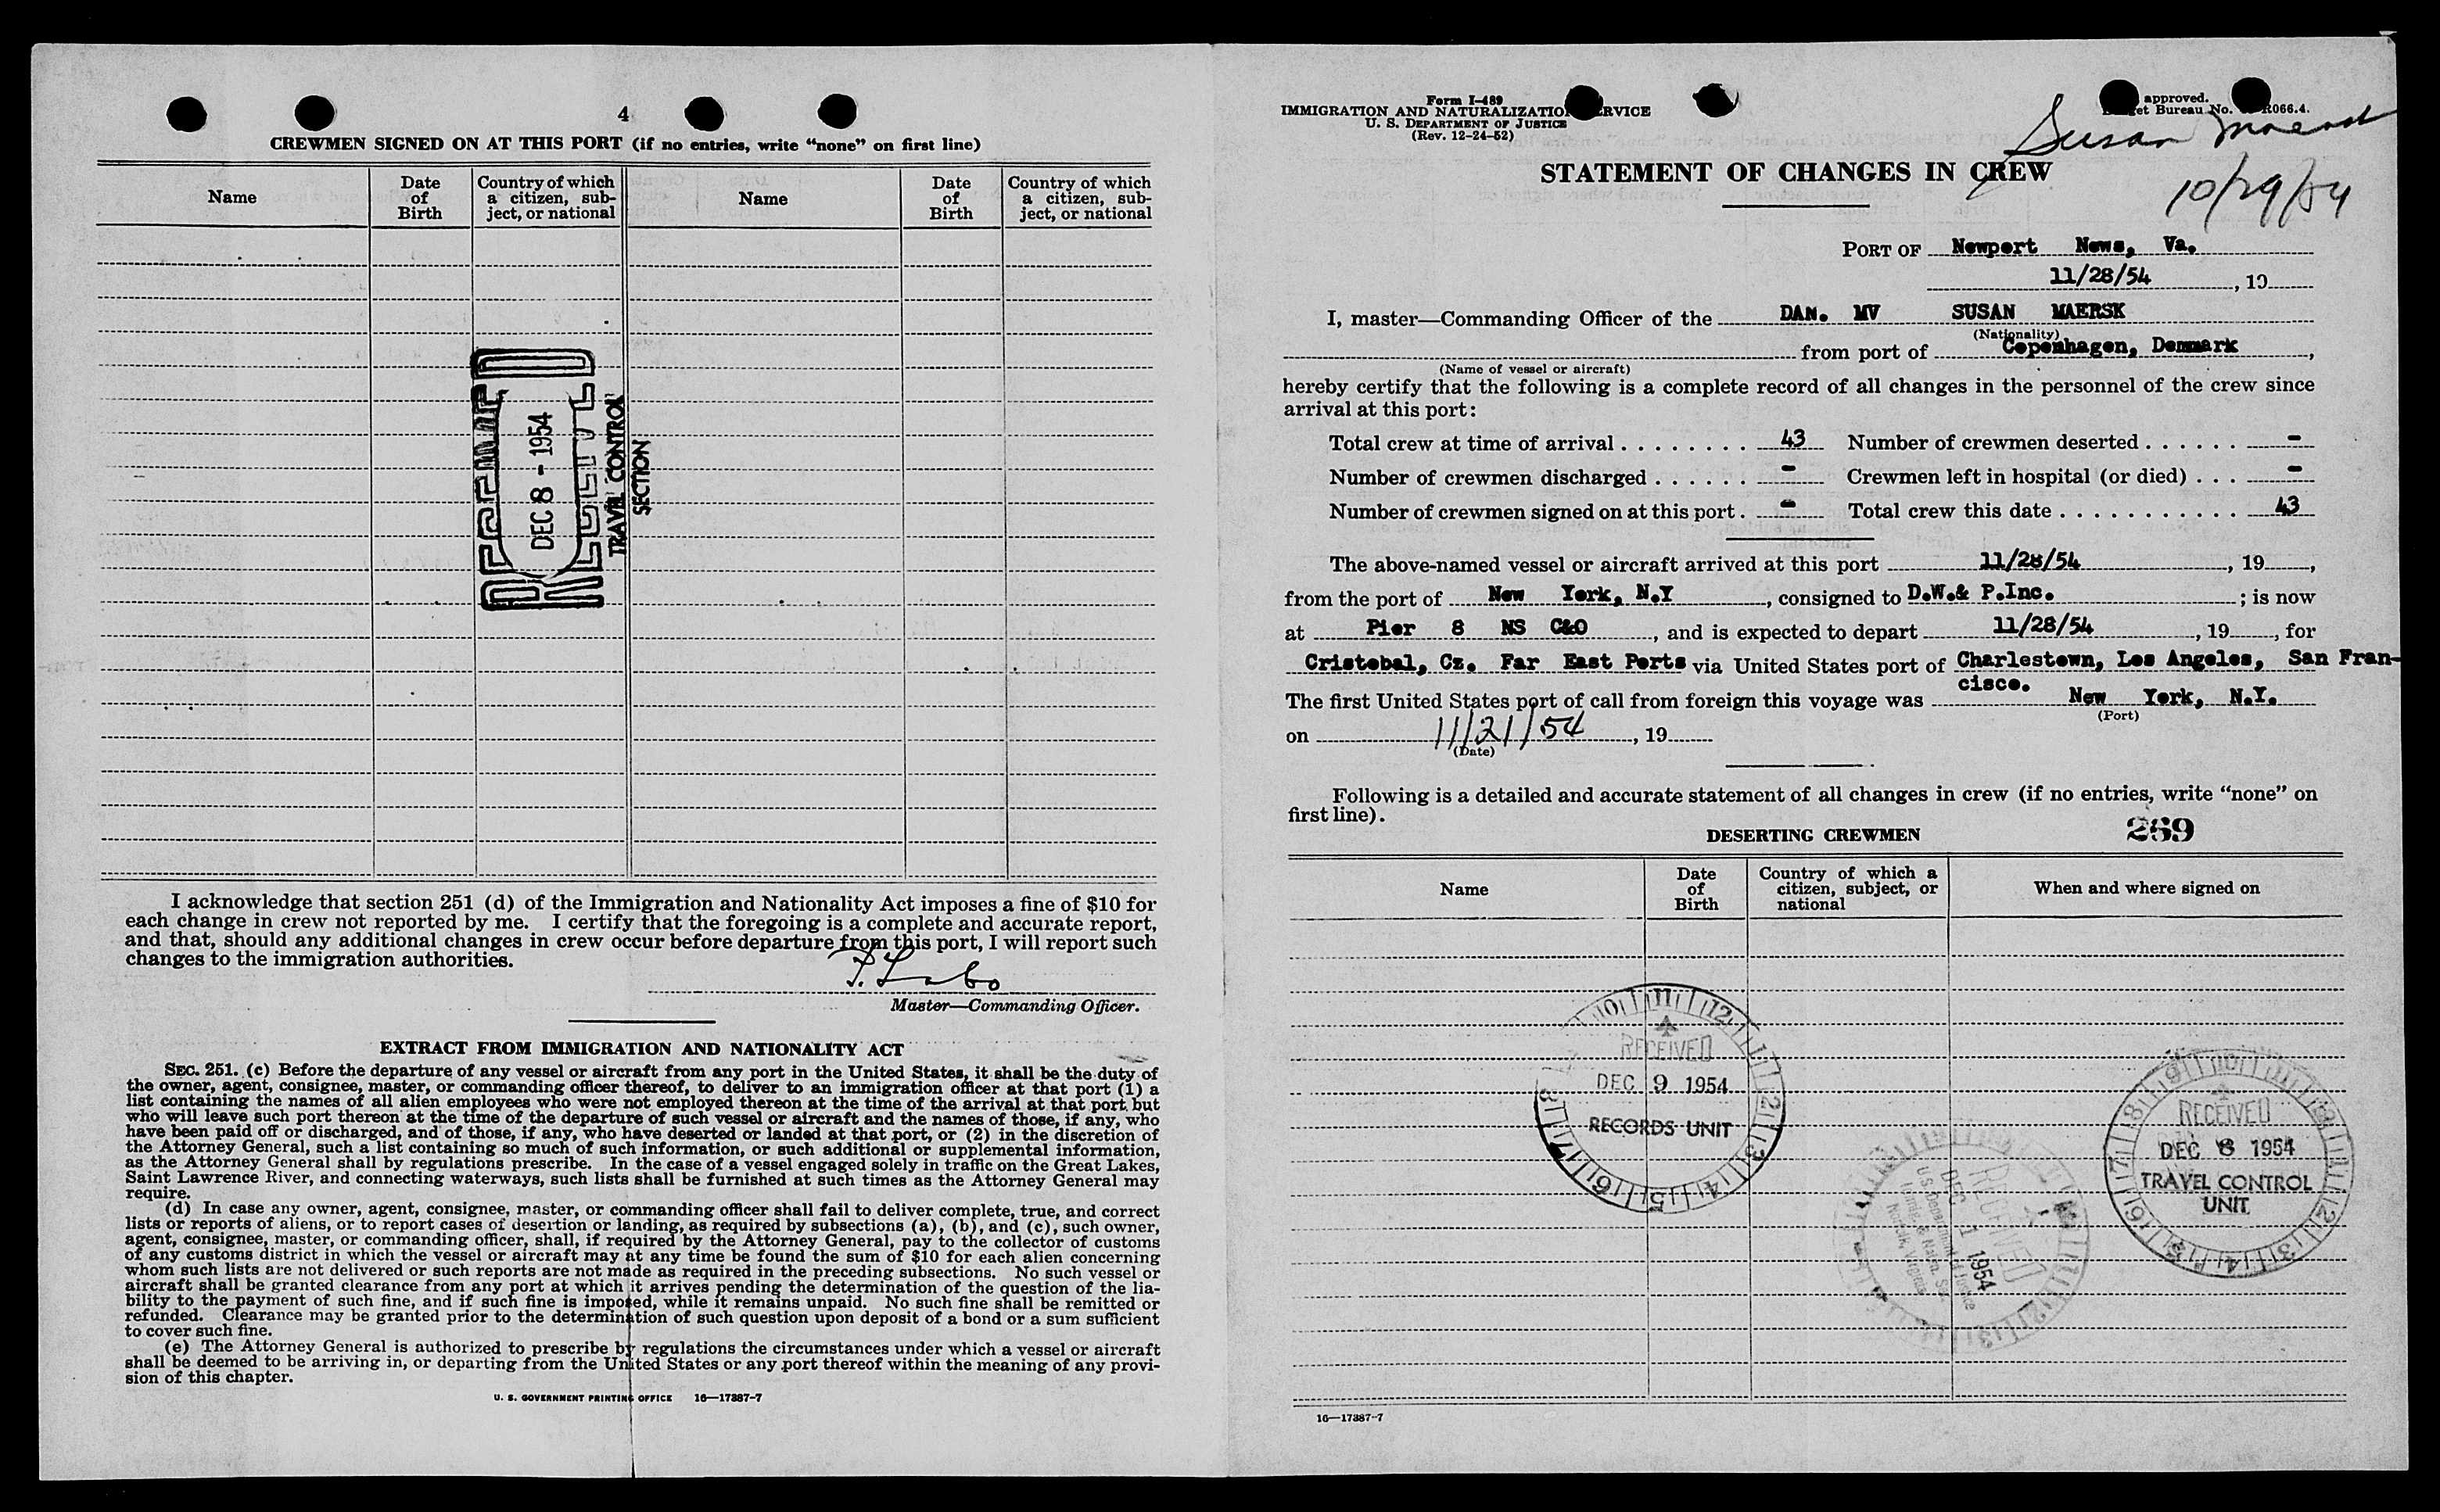 4
CREWMEN SIGNED ON AT THIS PORT (if no entries, write “none” on first line)
Name
Date of Birth
Country of which a citizen, subject, or national
Name
Date of Birth
Country of which a citizen, subject, or national
RECEIVED
DEC 8 - 1954
TRAVEL CONTROL
SECTION
I acknowledge that section 251 (d) of the Immigration and Nationality Act imposes a fine of $10 for
each change in crew not reported by me. I certify that the foregoing is a complete and accurate report,
and that, should any additional changes in crew occur before departure from this port, I will report such
changes to the immigration authorities.
Master—Commanding Officer.
EXTRACT FROM IMMIGRATION AND NATIONALITY ACT
SEC. 251. (c) Before the departure of any vessel or aircraft from any port in the United States, it shall be the duty of
the owner, agent, consignee, master, or commanding officer thereof, to deliver to an immigration officer at that port (1) a
list containing the names of all alien employees who were not employed thereon at the time of the arrival at that port but
who will leave such port thereon at the time of the departure of such vessel or aircraft and the names of those, if any, who
have been paid off or discharged, and of those, if any, who have deserted or landed at that port, or (2) in the discretion of
the Attorney General, such a list containing so much of such information, or such additional or supplemental information,
as the Attorney General shall by regulations prescribe. In the case of a vessel engaged solely in traffic on the Great Lakes,
Saint Lawrence River, and connecting waterways, such lists shall be furnished at such times as the Attorney General may
require.
(d) In case any owner, agent, consignee, master, or commanding officer shall fail to deliver complete, true, and correct
lists or reports of aliens, or to report cases of desertion or landing, as required by subsections (a), (b), and (c), such owner,
agent, consignee, master, or commanding officer, shall, if required by the Attorney General, pay to the collector of customs
of any customs district in which the vessel or aircraft may at any time be found the sum of $10 for each alien concerning
whom such lists are not delivered or such reports are not made as required in the preceding subsections. No such vessel or
aircraft shall be granted clearance from any port at which it arrives pending the determination of the question of the lia-
bility to the payment of such fine, and if such fine is imposed, while it remains unpaid. No such fine shall be remitted or
refunded. Clearance may be granted prior to the determination of such question upon deposit of a bond or a sum sufficient
to cover such fine.
(e) The Attorney General is authorized to prescribe by regulations the circumstances under which a vessel or aircraft
shall be deemed to be arriving in, or departing from the United States or any port thereof within the meaning of any provi-
sion of this chapter.
U. S. GOVERNMENT PRINTING OFFICE 16—17387-7
Form I-489
IMMIGRATION AND NATURALIZATION SERVICE
U. S. DEPARTMENT OF JUSTICE
(Rev. 12-24-52)
approved.
Bureau No. R066.4.
Susan Maersk
10/29/54
STATEMENT OF CHANGES IN CREW
PORT OF Newport News, Va.
11/28/54, 19
I, master—Commanding Officer of the DAN. MV SUSAN MAERSK
(Nationality)
from port of Copenhagen, Denmark,
(Name of vessel or aircraft)
hereby certify that the following is a complete record of all changes in the personnel of the crew since
arrival at this port:
Total crew at time of arrival . . . . . . . . 43 Number of crewmen deserted . . . . . . -
Number of crewmen discharged . . . . . . - Crewmen left in hospital (or died) . . . -
Number of crewmen signed on at this port . - Total crew this date . . . . . . . . . . . 43
The above-named vessel or aircraft arrived at this port 11/28/54, 19,
from the port of New York, N.Y, consigned to D.W.& P.Inc.; is now
at Pier 8 NS C&O, and is expected to depart 11/28/54, 19, for
Cristobal, Cz. Far East Ports via United States port of Charlestown, Los Angeles, San Fran-
cisco.
The first United States port of call from foreign this voyage was New York, N.Y.
(Port)
on 11/21/54, 19
(Date)
Following is a detailed and accurate statement of all changes in crew (if no entries, write “none” on
first line).
DESERTING CREWMEN
269
Name
Date of Birth
Country of which a citizen, subject, or national
When and where signed on
RECEIVED
DEC 9 1954
RECORDS UNIT
RECEIVED
DEC 1 1954
RECEIVED
DEC 8 1954
TRAVEL CONTROL
UNIT
16—17387-7